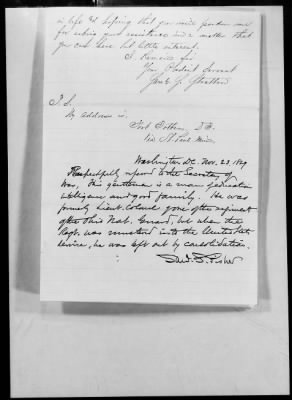 in life and hoping that you will pardon me
for asking your assistance in a matter that
you can have but little interest.
I Remain Sir
Your Obedient Servant
P.S.
My address is.
Fort Totten D.T.
Via St Paul Minn.
Washington D.C. Nov. 23 1869
Respectfully referred to the Secretary of
War. This gentleman is a man of education
intelligence and good family. He was
formerly Lieut. Colonel of one of the regiments
of the Ohio Nat. Guard, but when the
Regt. was mustered into the United States
service, he was left out by consolidation.